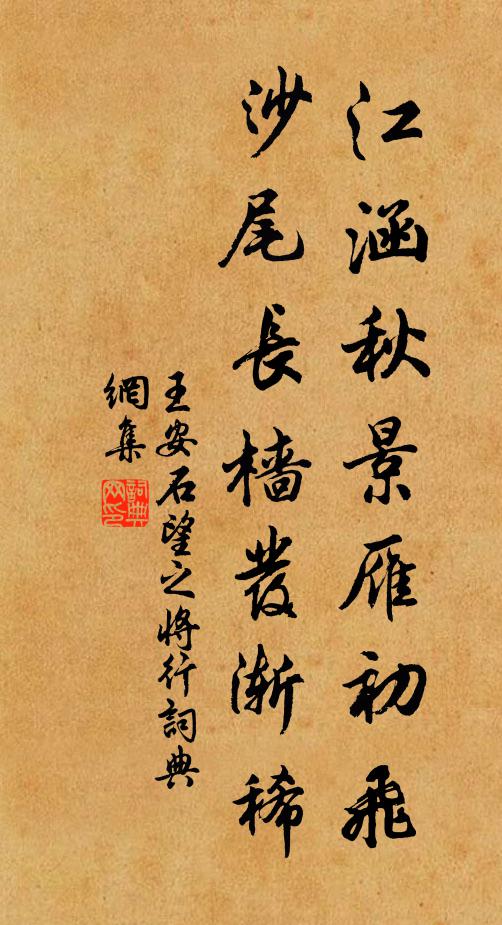 江涵秋景雁初飛
沙尾長檣發漸稀
王安石望之將行詞典
網集
詞典網印